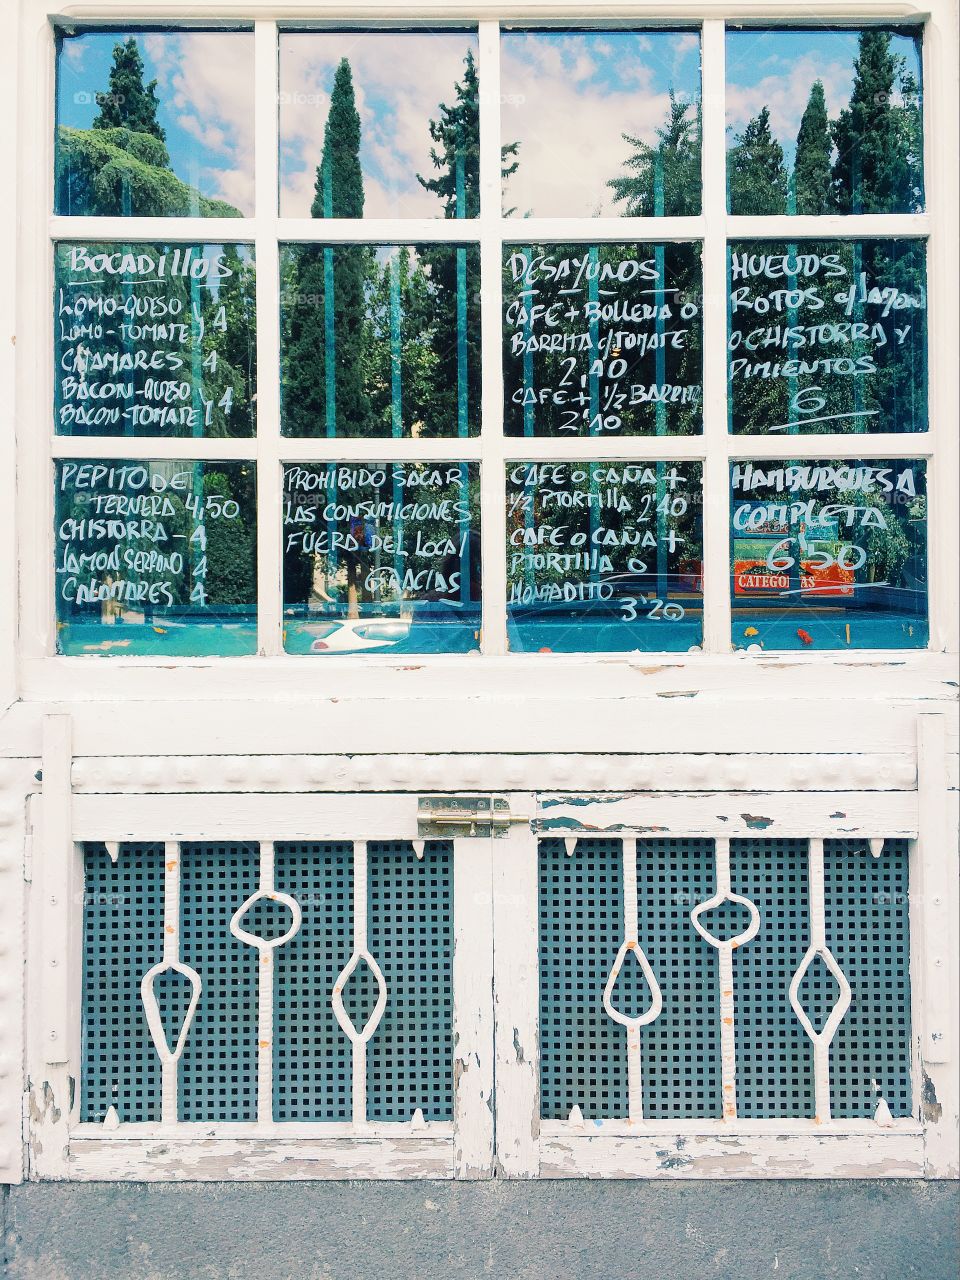 BOCADILLOS
LOMO-QUESO
LOMO-TOMATE } 4
CALAMARES 4
BACON-QUESO
BACON-TOMATE } 4
DESAYUNOS
CAFE + BOLLERIA O
BARRITA C/TOMATE
2,10
CAFE + 1/2 BARRITA
2'10
HUEVOS
ROTOS C/JAMON
O CHISTORRA Y
PIMIENTOS
6
PEPITO DE
TERNERA 4,50
CHISTORRA - 4
JAMON SERRANO 4
CALAMARES 4
PROHIBIDO SACAR
LAS CONSUMICIONES
FUERA DEL LOCAL
GRACIAS
CAFE O CAÑA +
1/2 PTORTILLA 2'40
CAFE O CAÑA +
PTORTILLA O
MONTADITO
3'20
HAMBURGUESA
COMPLETA
6'50